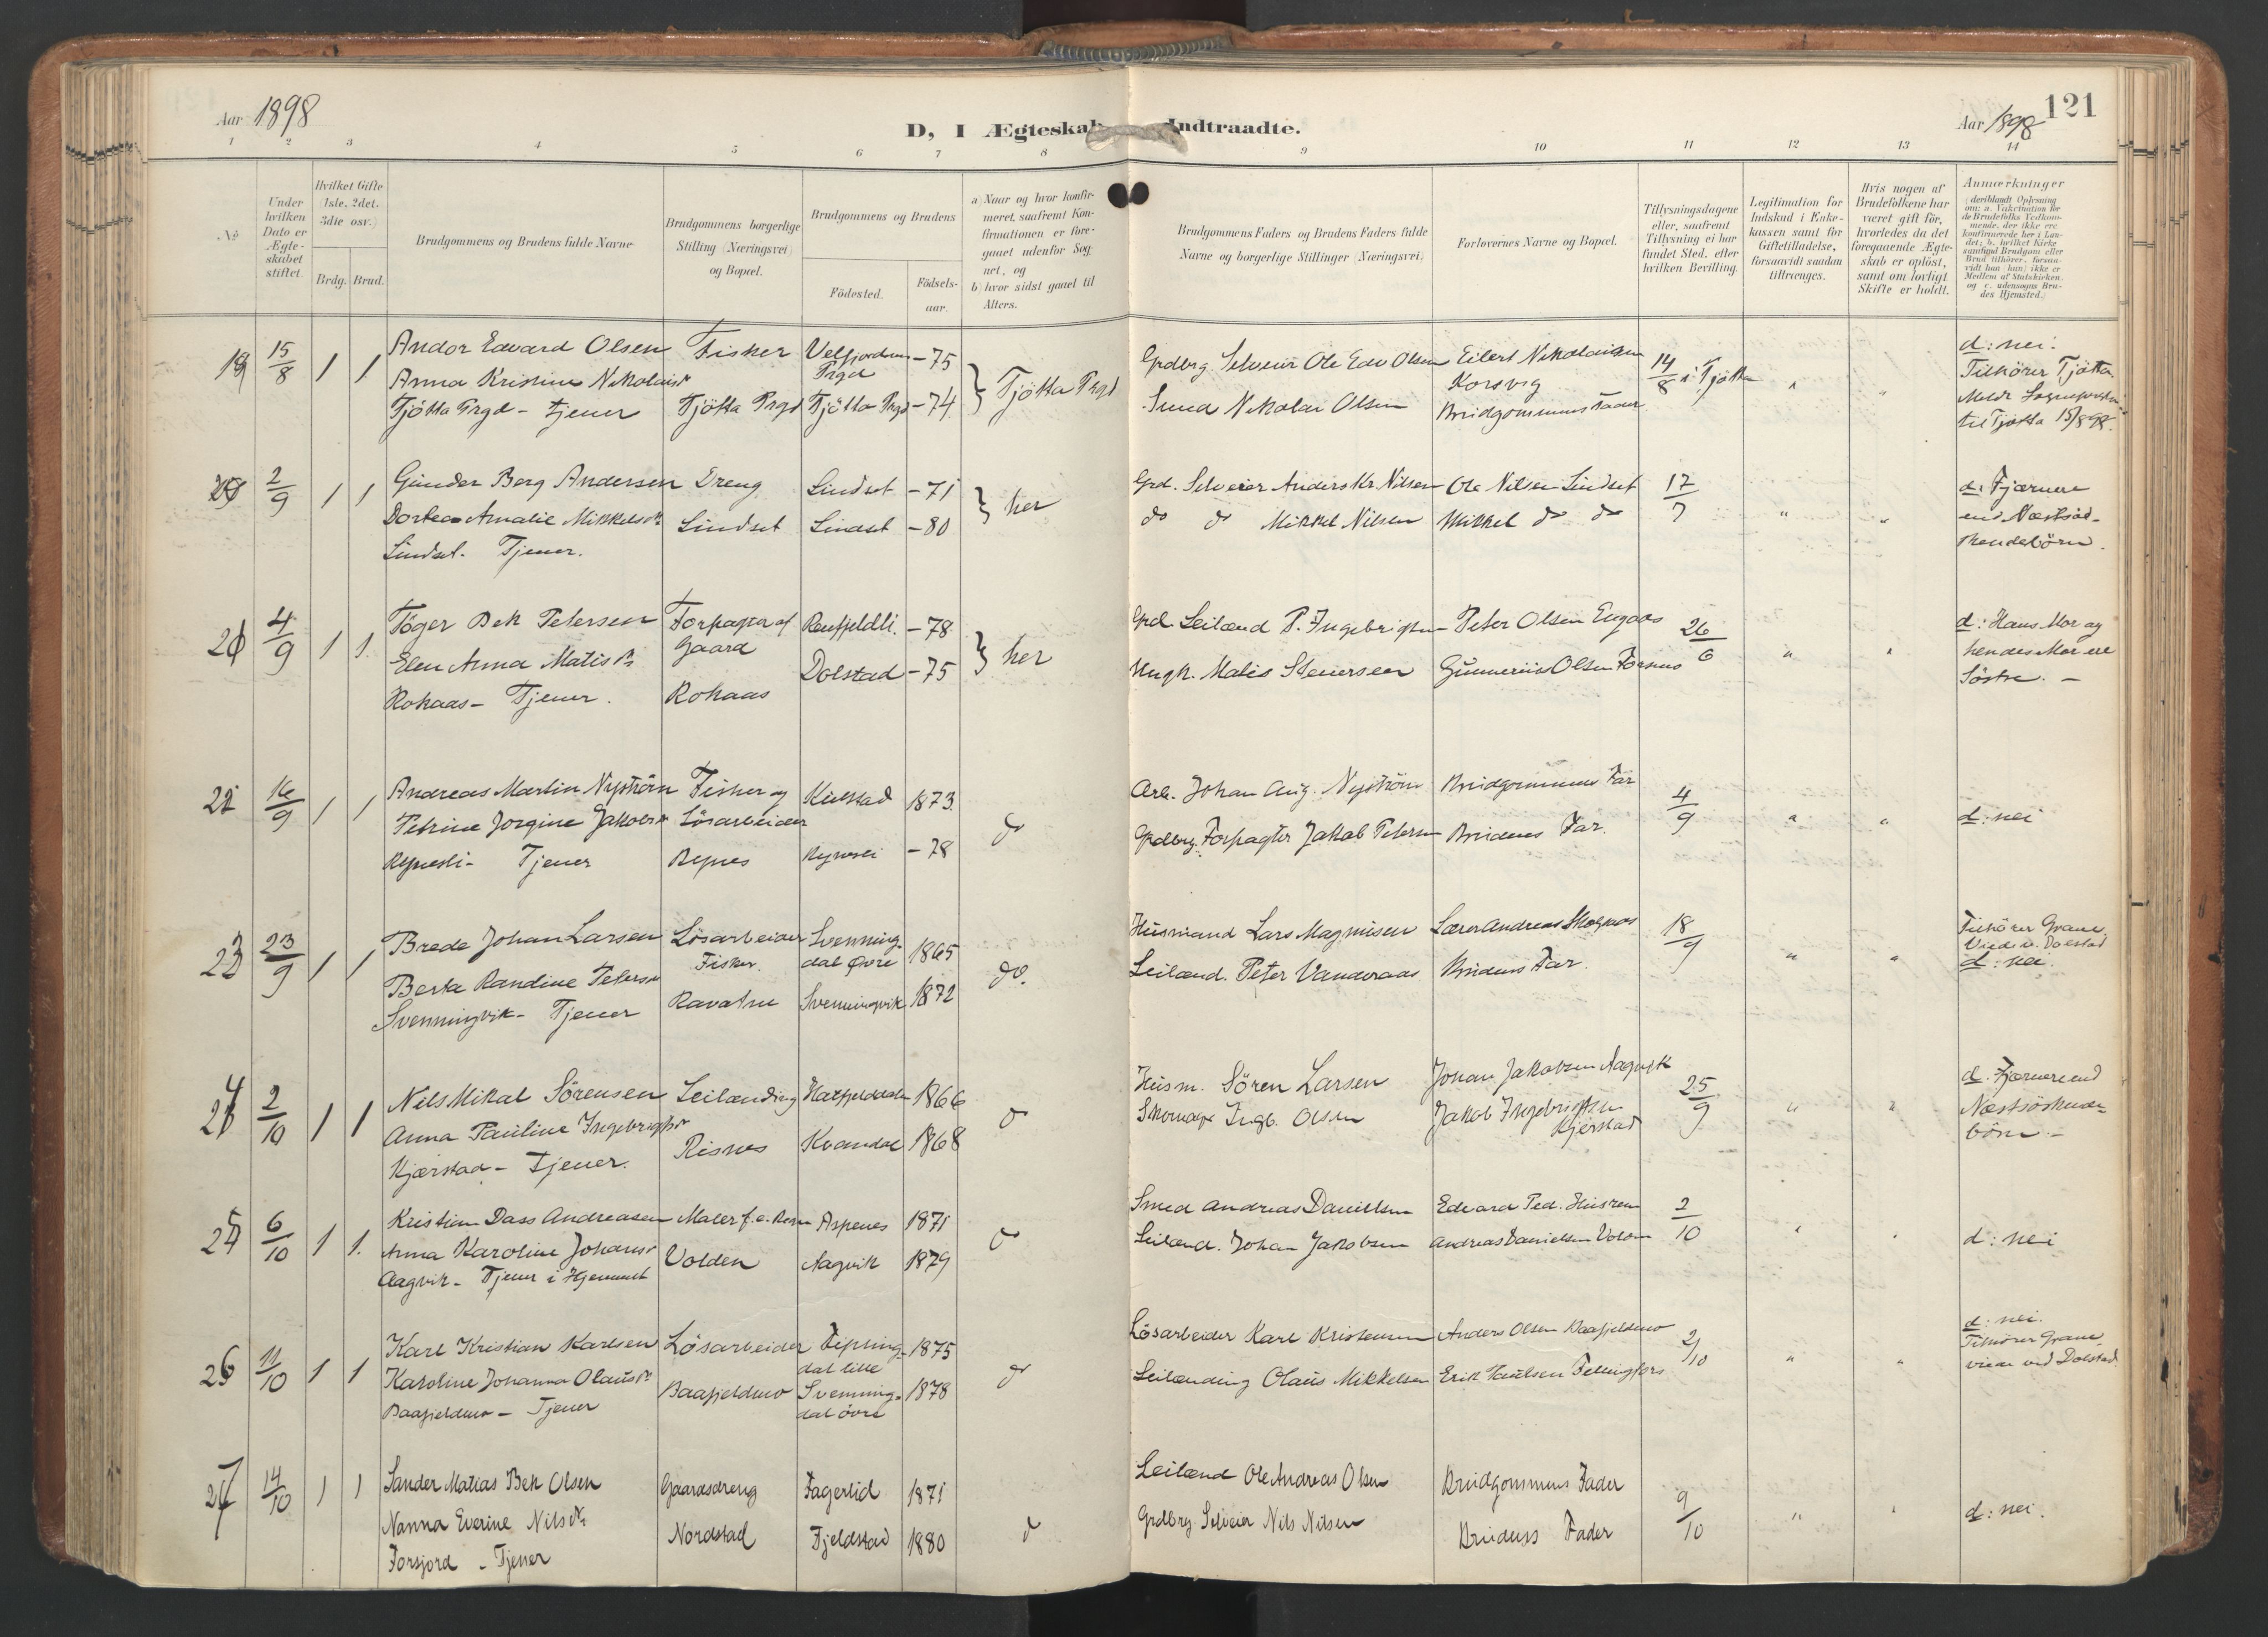 Aar 1898
D, I Ægteskab Indtraadte.
Aar 1898
121
1 2 3 4 5 6 7 8 9 10 11 12 13 14
No
Under hvilken Dato er Ægteskabet stiftet.
Hvilket Gifte 1ste, 2det, 3die osv.)
Brdg. Brud.
Brudgommens og Brudens fulde Navne
Brudgommens borgerlige Stilling (Næringsvei) og Bopæl.
Brudgommens og Brudens
Fødested.
Fødselsaar.
a) Naar og hvor konfirmeret, saafremt Konfirmationen er foregaaet udenfor Sognet, og
b) hvor sidst gaaet til Alters.
Brudgommens Faders og Brudens Faders fulde Navne og borgerlige Stillinger (Næringsvei)
Forlovernes Navne og Bopæl.
Tillysningsdagene eller, saafremt Tillysning ei har fundet Sted, efter hvilken Bevilling.
Legitimation for Indskud i Enkekassen samt for Giftetilladelse, forsaavidt saadan tiltrænges.
Hvis nogen af Brudefolkene har været gift før, hvorledes da det foregaaende Ægteskab er opløst, samt om lovligt Skifte er holdt.
Anmærkninger (deriblandt Oplysning om: a. Vakcination for de Brudefolks Vedkommende, der ikke ere konfirmerede her i Landet; b. hvilket Kirkesamfund Brudgom eller Brud tilhører, forsaavidt han (hun) ikke er Medlem af Statskirken, og c. udensogns Brudes Hjemsted.)
19 15/8 1 1
Andor Edvard Olsen Fisker Velfjorden Prgd - 75
Anna Kristine Nikolaisdr
Tjøtta Prgd - Tjener Tjøtta Prgd Tjøtta Prgd - 74 } Tjøtta Prgd
Grdbrg Selveier Ole Edv Olsen Eilert Nikolaisen Korsvig 14/8 i Tjøtta " "
Nikolai Olsen Brudgommens Fader
d: nei. Tilhører Tjøtta.
til Tjøtta 15/8 98.
20 2/9 1 1
Gunder Berg Andersen Dreng Lindset - 71 } her
Dortea Amalie Mikkelsdr Lindset Lindset - 80
Lindset. Tjener.
Grd. Selveier Anders Kr. Nilsen Ole Nilsen Lindset 17/7
do do Mikkel Nilsen Mikkel do do " "
d: Fjærnere
end Næstsød-
skendebörn.
21 4/9 1 1.
Töger Bek Petersen Forpagter af Gaard Renfjeldli. - 78 } her
Elen Anna Matisdr Dolstad - 75
Rohaas - Tjener. Rohaas
Grd. Leilænd P. Ingebrigtsen Peter Olsen Engaas 26/6 " "
Ungk. Matis Steiersen Gunnerius Olsen Forsnes
d: Hans Mor og
hendes Mor ere
Söstre. -
22 16/9 1 1
Andreas Martin Nyström Fisker og Kulstad 1873
Petrine Jorgine Jakobsdr Lösarbeider do
Rynesli - Tjener Rynes - 78
Arb. Johan Aug. Nyström Brudgommens Far 4/9 " "
Grdbrg. Forpagter Jakob Petersen Brudens Far.
d: nei
23 23/9 1 1
Brede Johan Larsen Lösarbeider Fisker. Svenningdal Øvre 1865
Berta Randine Petersdr do.
Svenningvik - Tjener Ravatne Svenningvik 1872
Husmand Lars Magnusen Lærer Andreas 18/9 " "
Leilænd. Peter Brudens Far.
Tilhører Grane.
Viede v. Dolstad
d: nei.
24 2/10 1 1
Nils Mikal Sörensen Leilænding Hatfjelddalen 1866 do
Anna Pauline Ingebrigtsdr
Kjærstad - Tjener. Risnes Kvandal 1868
Husm. Sören Larsen Johan Jakobsen Aagvik 25/9 " "
Skomager Ingb. Olsen Jakob Ingebrigtsen Kjerstad
d: Fjærnere end
Næstsöskende-
börn -
25 6/10 1 1.
Kristian Dass Andreasen Maler Aspenes 1871 do
Anna Karoline Johansdr Volden Aagvik 1879
Aagvik - Tjener i Hjemmet
Smed Andreas Danielsen Edvard Ped. Husren 2/10 " "
Leilænd. Johan Jakobsen Andreas Danielsen Volden
d: nei
26 11/10 1 1
Karl Kristian Karlsen Lösarbeider dal lille 1875 do
Karoline Johanna Olausdr Baafjeldmo Svenningdal övre 1878
Baafjeldmo - Tjener
Lösarbeider Karl Kristensen Anders Olsen Baafjeldmo 2/10 " "
Leilænding Olaus Mikkelsen Erik Paulsen Fellingfors
d: nei.
Tilhører Grane,
viede ved Dolstad.
27 14/10 1 1
Sander Matias Bek Olsen Gaardsdreng Fagerlid 1871
Nanna Everine Nilsdr Nordstad Fjeldstad 1880 do
Forsjord - Tjener
Leilænd Ole Andreas Olsen Brudgommens Fader
Grdbrg. Selveier Nils Nilsen Brudens Fader 9/10 " "
d: nei.